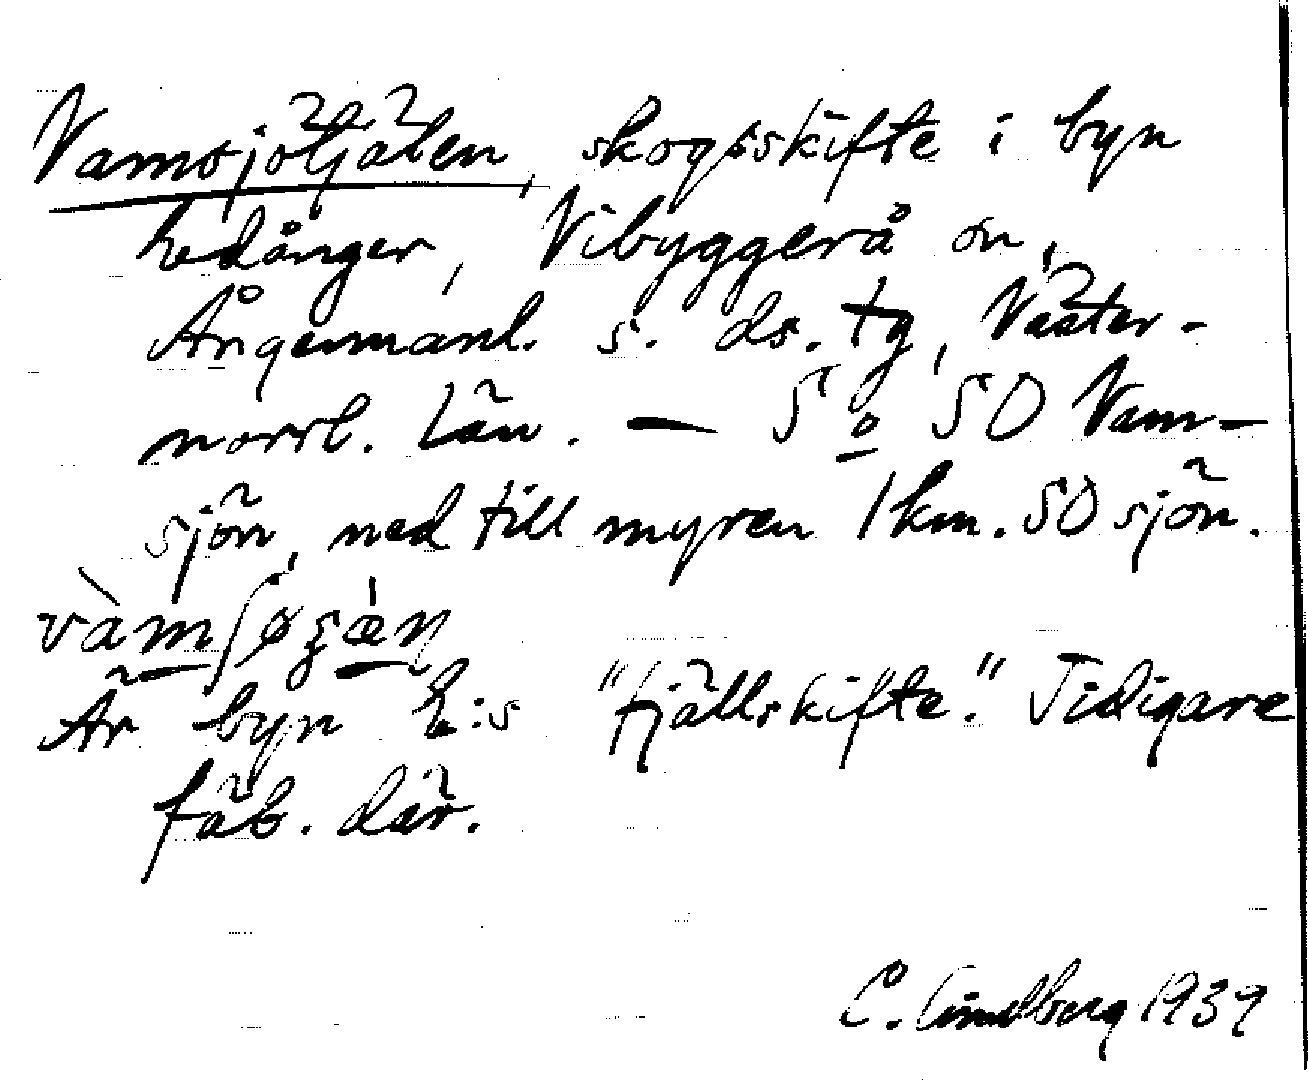 Vamsjötjälen, skogsskifte i byn
Hedånger, Vibyggerå sn,
Ångermanl. s. ds. tg, Väster-
norrl. län. — S o SO Vam-
sjön, ned till myren 1 km. SO sjön.
Är byn H:s "fjällskifte". Tidigare
fäb. där.
C. Lindberg 1939